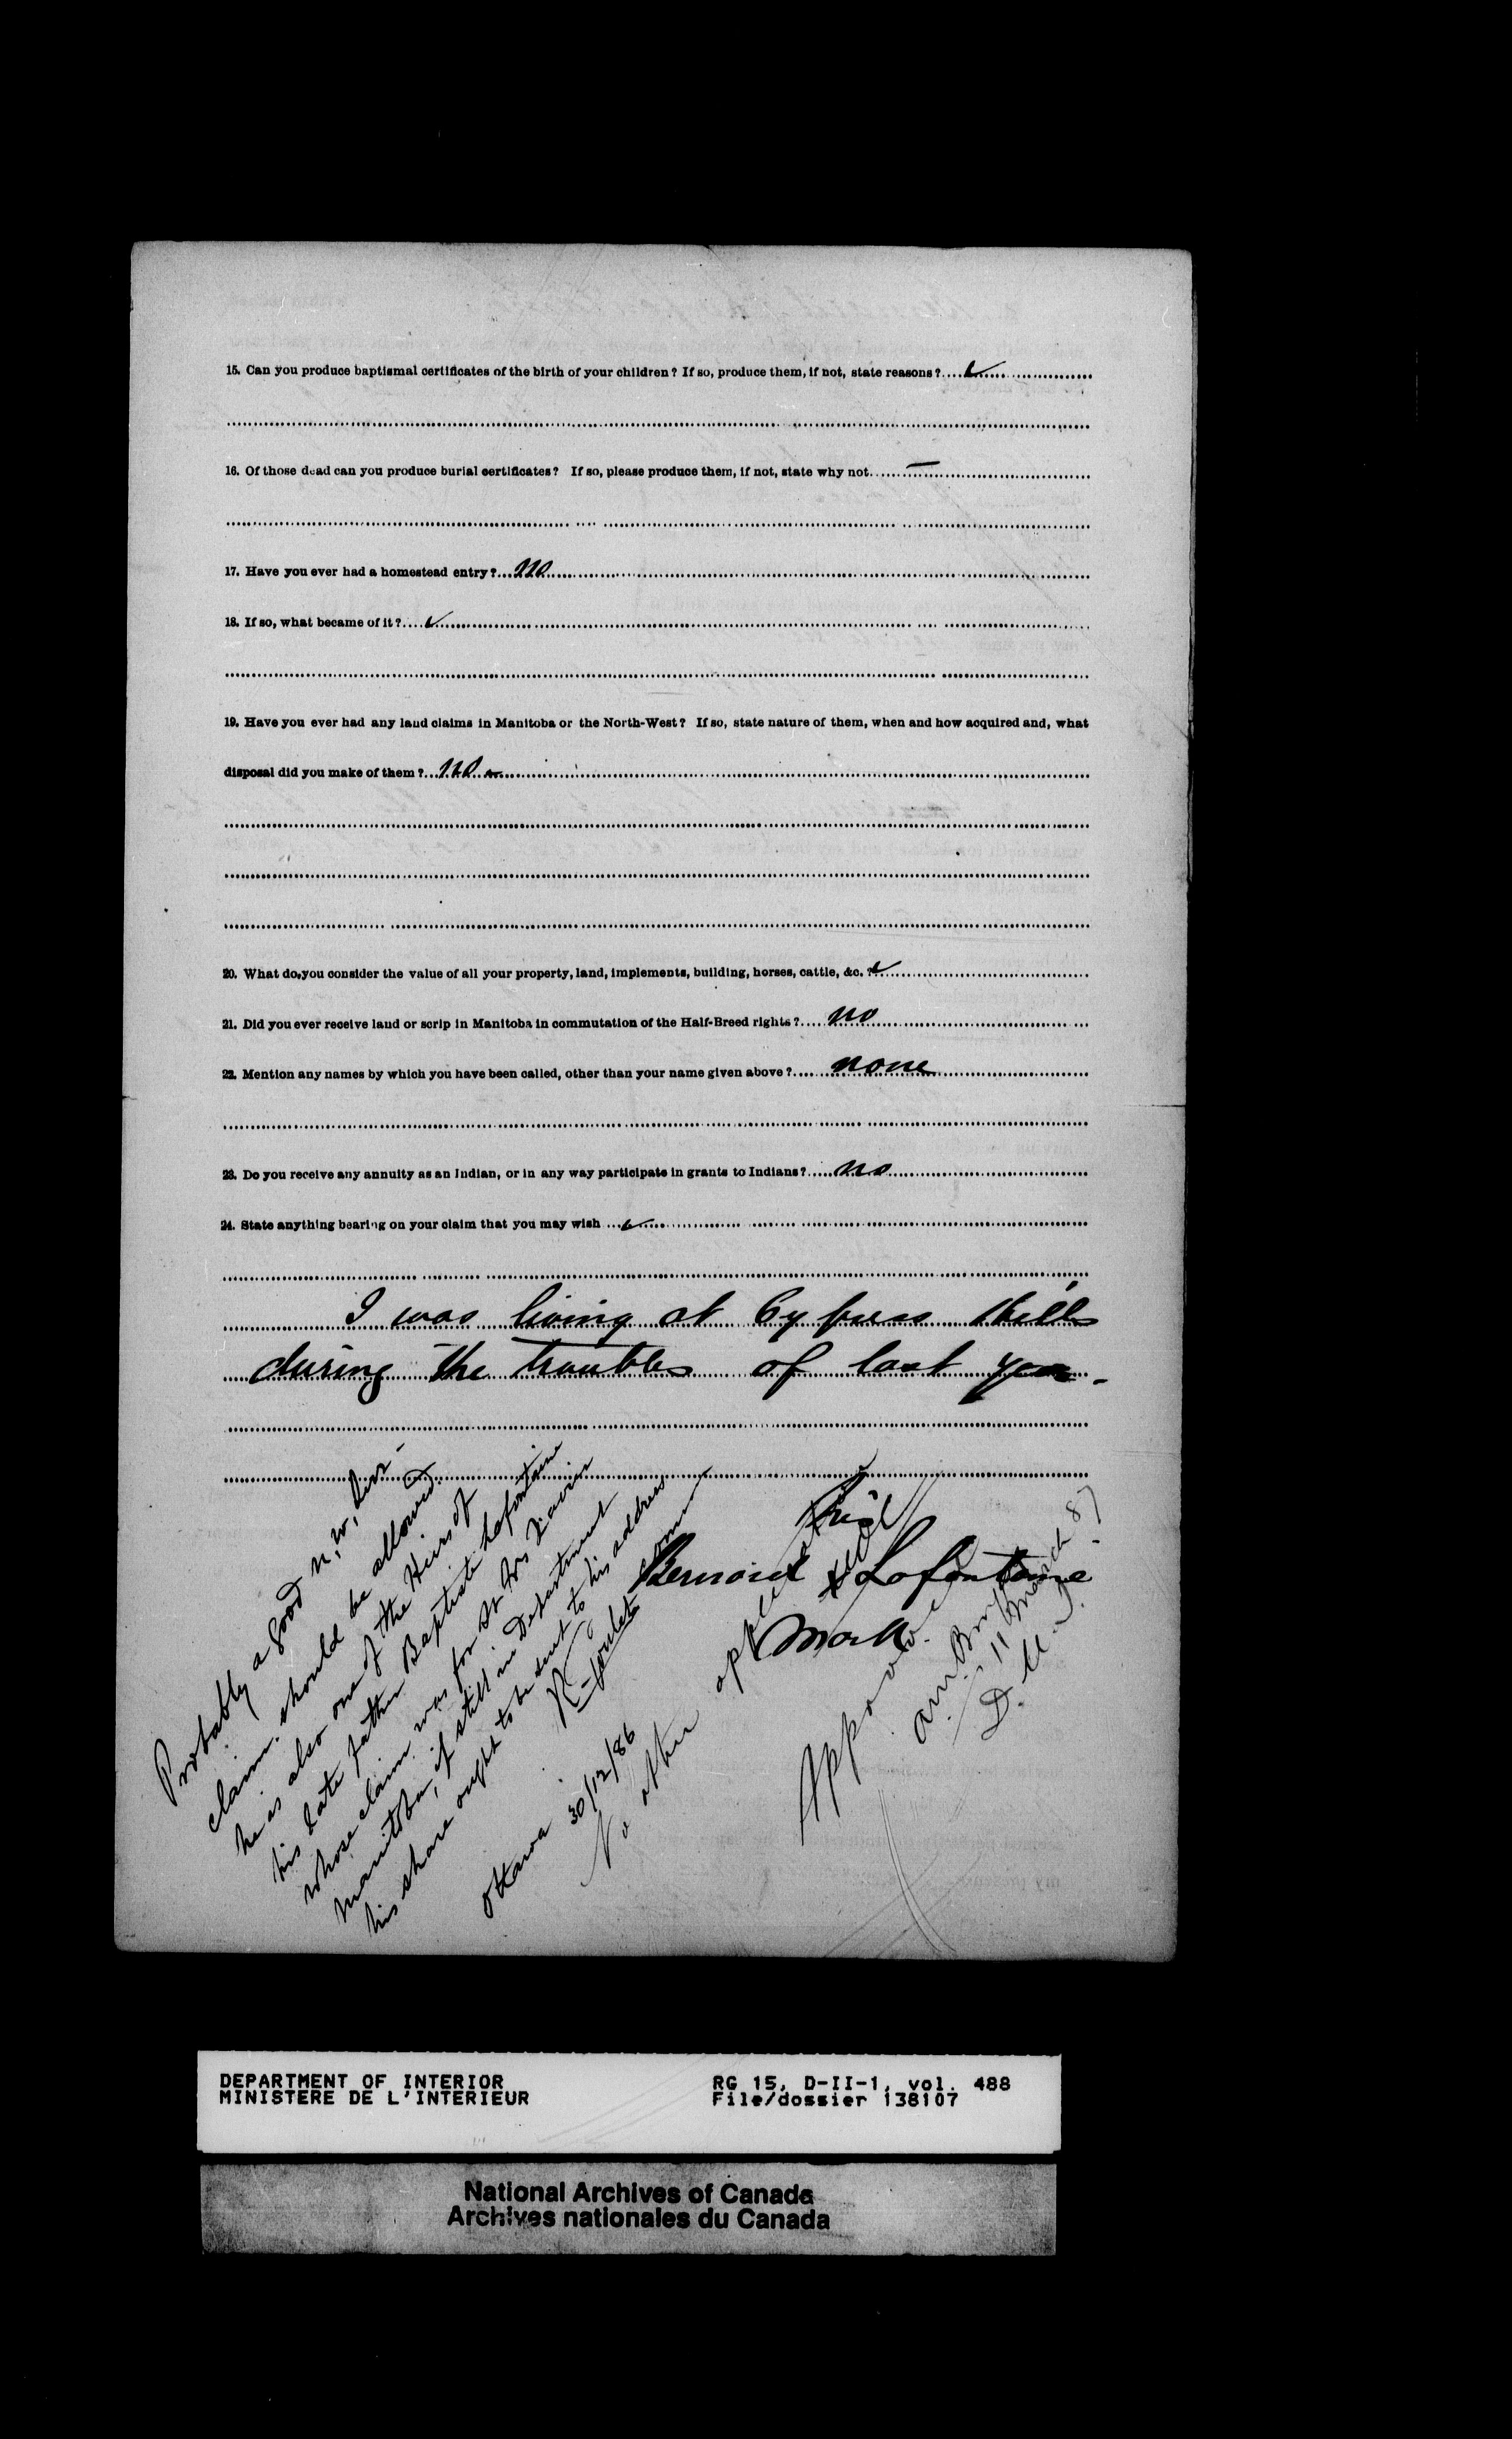 15. Can you produce baptismal certificates of the birth of your children? If so, produce them, if not, state reasons?
16. Of those dead can you produce burial certificates? If so, please produce them, if not, state why not. —
17. Have you ever had a homestead entry? no
18. If so, what became of it?
19. Have you ever had any land claims in Manitoba or the North-West? If so, state nature of them, when and how acquired and, what
disposal did you make of them? no
20. What do you consider the value of all your property, land, implements, building, horses, cattle, &c. ?
21. Did you ever receive land or scrip in Manitoba in commutation of the Half-Breed rights? no
22. Mention any names by which you have been called, other than your name given above? none
23. Do you receive any annuity as an Indian, or in any way participate in grants to Indians? no
24. State anything bearing on your claim that you may wish
I was living at Cypress Hills
during the troubles of last year.
his
Bernard x Lafontaine
mark
Probably a good N.W.
claim. should be allowed
he is also one of the Heirs of
his late father Baptiste Lafontaine
whose claim was for St Frs Xavier
Manitoba, if still in Department
his share ought to be sent to his address
R Goulet
Ottawa 30/12/86
No other
Approved
11 March 87
DEPARTMENT OF INTERIOR
MINISTERE DE L'INTERIEUR
RG 15, D-II-1, vol. 488
File/dossier 138107
National Archives of Canada
Archives nationales du Canada